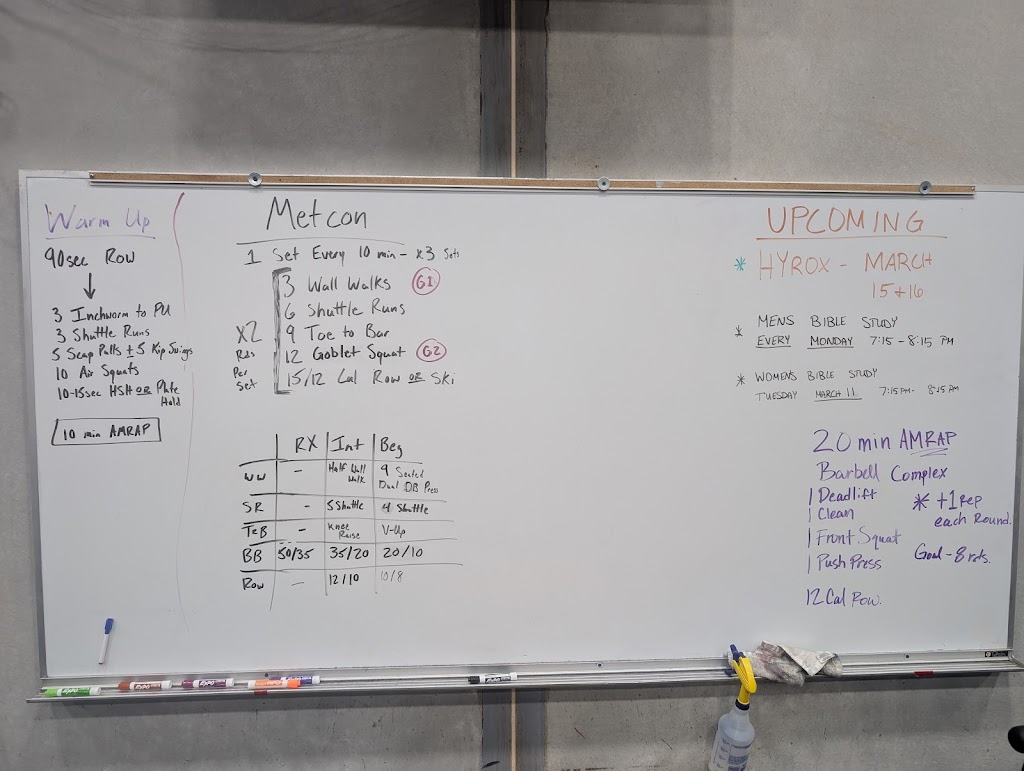 Warm Up
90sec Row
3 Inchworm to PU
3 Shuttle Runs
5 Scap Pulls + 5 Kip Swings
10 Air Squats
10-15sec HSH OR Plate
Hold
10 min AMRAP
Metcon
1 Set Every 10 min - x3 Sets
X2
Rds
Per
Set
3 Wall Walks G1
6 Shuttle Runs
9 Toe to Bar
12 Goblet Squat G2
15/12 Cal Row OR Ski
RX Int Beg
WW - Half Wall Walk 9 Seated Dual DB Press
SR - 5 Shuttle 4 Shuttle
TtB - Knee Raise V-Up
BB 50/35 35/20 20/10
Row - 12/10 10/8
UPCOMING
* HYROX - MARCH
15+16
* MENS BIBLE STUDY
EVERY MONDAY 7:15 - 8:15 PM
* WOMENS BIBLE STUDY
TUESDAY MARCH 11 7:15PM - 8:15 PM
20 min AMRAP
Barbell Complex
1 Deadlift
1 Clean
1 Front Squat
1 Push Press
* +1 rep
each Round.
Goal - 8 rds.
12 Cal Row.
EXPO
EXPO
EXPO
EXPO